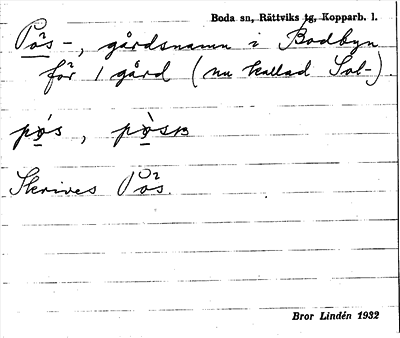 Boda sn, Rättviks tg, Kopparb. l.
Pås-, gårdsnamn i Bodbyn
för 1 gård (nu kallad Sol-).
Skrives Pås.
Bror Lindén 1932